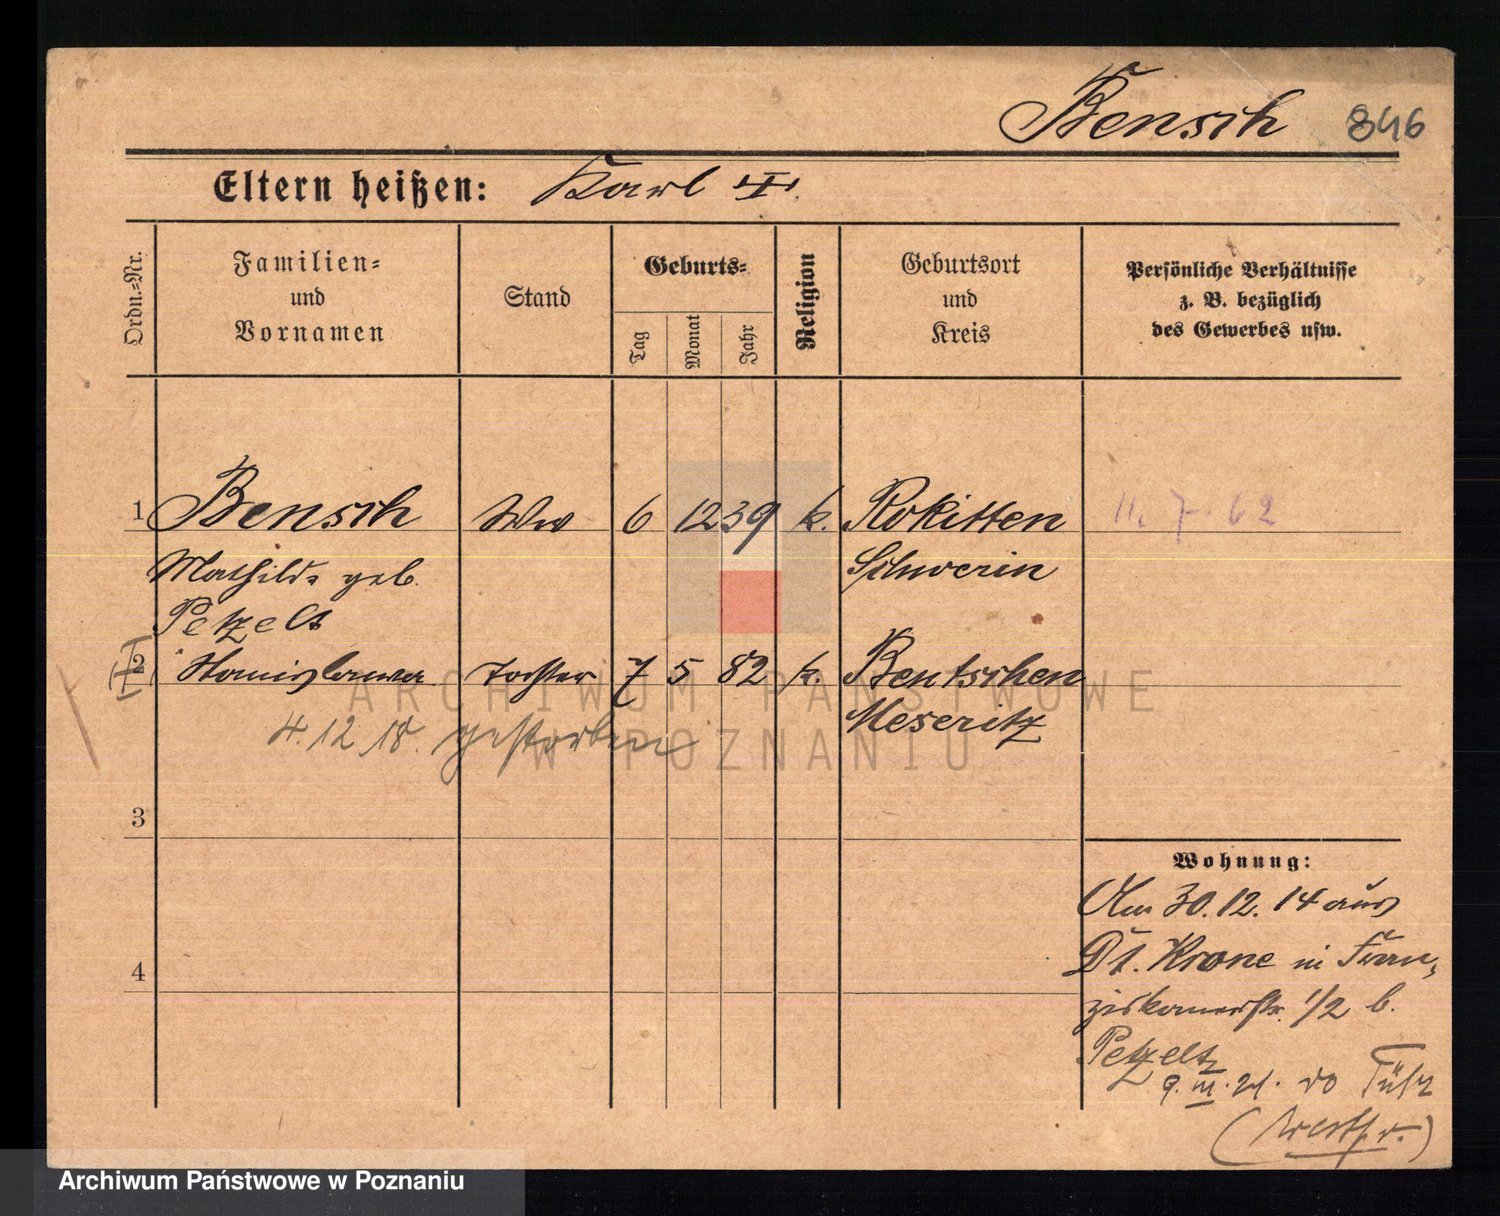 Bensch 846
Eltern heißen: Karl
Ordn.-Nr.
Familien-
und
Vornamen
Stand
Geburts-
Tag
Monat
Jahr
Religion
Geburtsort
und
Kreis
Persönliche Verhältnisse
z. B. bezüglich
des Gewerbes usw.
1 Bensch Ww 6 12 39 k. Rokitten 11. 7. 62
Mathilde geb. Schwerin
Petzelt
2 Stanislawa Tochter 7 5 82 k. Bentschen
4.12.18. gestorben Meseritz
3
4
Wohnung:
Am 30.12.14 aus
Dt. Krone in Fran-
ziskanerstr. 1/2 b.
Petzelt
9. III. 21.
ARCHIWUM PAŃSTWOWE
W POZNANIU
Archiwum Państwowe w Poznaniu